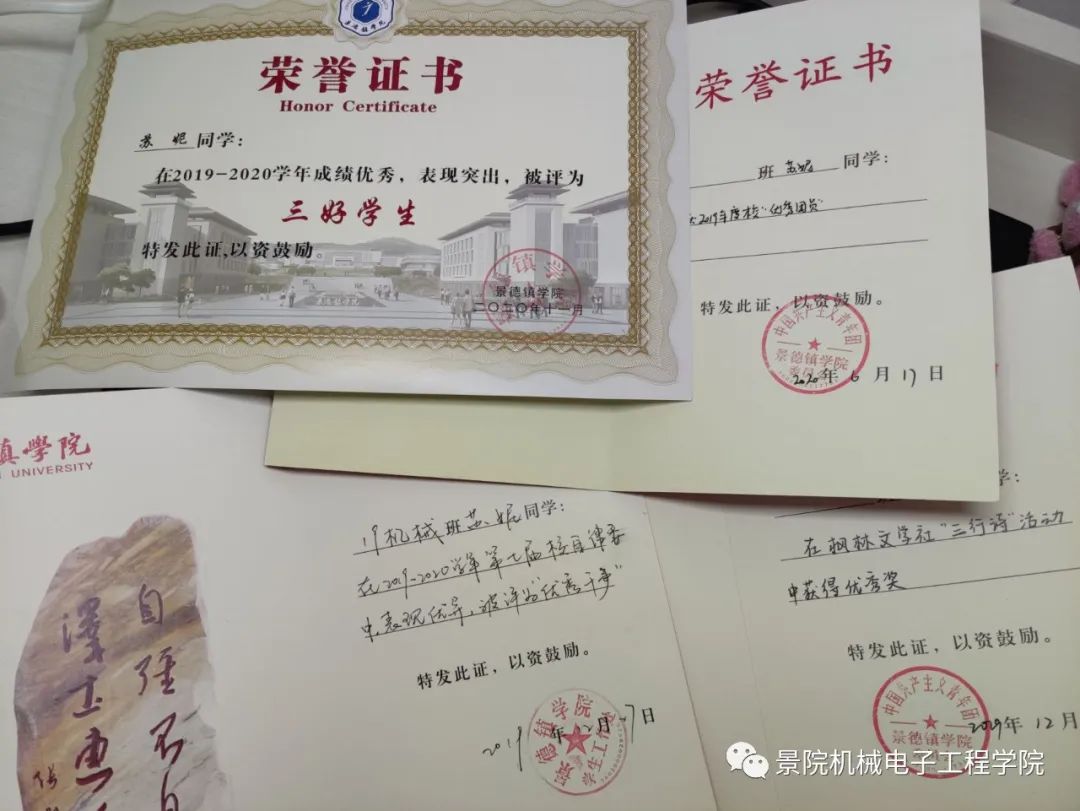 荣誉证书
Honor Certificate
苏妮同学：
在2019-2020学年成绩优秀，表现突出，被评为
三好学生
特发此证，以资鼓励。
景德镇学院
二〇二〇年十一月
荣誉证书
班 苏妮 同学：
2019年度校“优秀团员”
特发此证，以资鼓励。
中国共产主义青年团
景德镇学院
委员会
2020年6月17日
镇學院
UNIVERSITY
自强不息
澤土惠
19机械班苏妮同学：
在2019-2020学年第七届校自律委
中，表现优异，被评为“优秀干事”
特发此证，以资鼓励。
景德镇学院
学生工作
2019年12月7日
学：
在枫林文学社“三行诗”活动
中获得优秀奖
特发此证，以资鼓励。
中国共产主义青年团
景德镇学院
2019年12月
景院机械电子工程学院